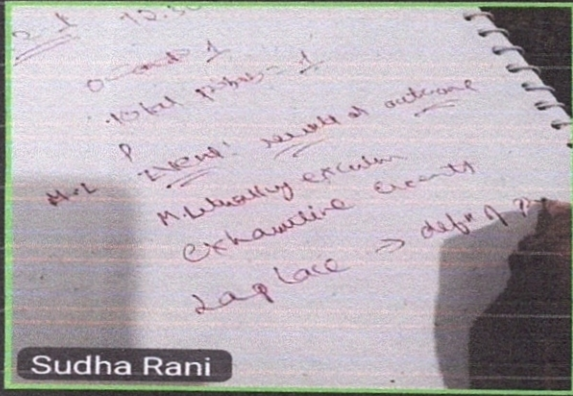 0 and 1
total prob = 1
P
Event: result of outcome
Mutually exclusive
exhaustive events
Laplace → defn of
Sudha Rani